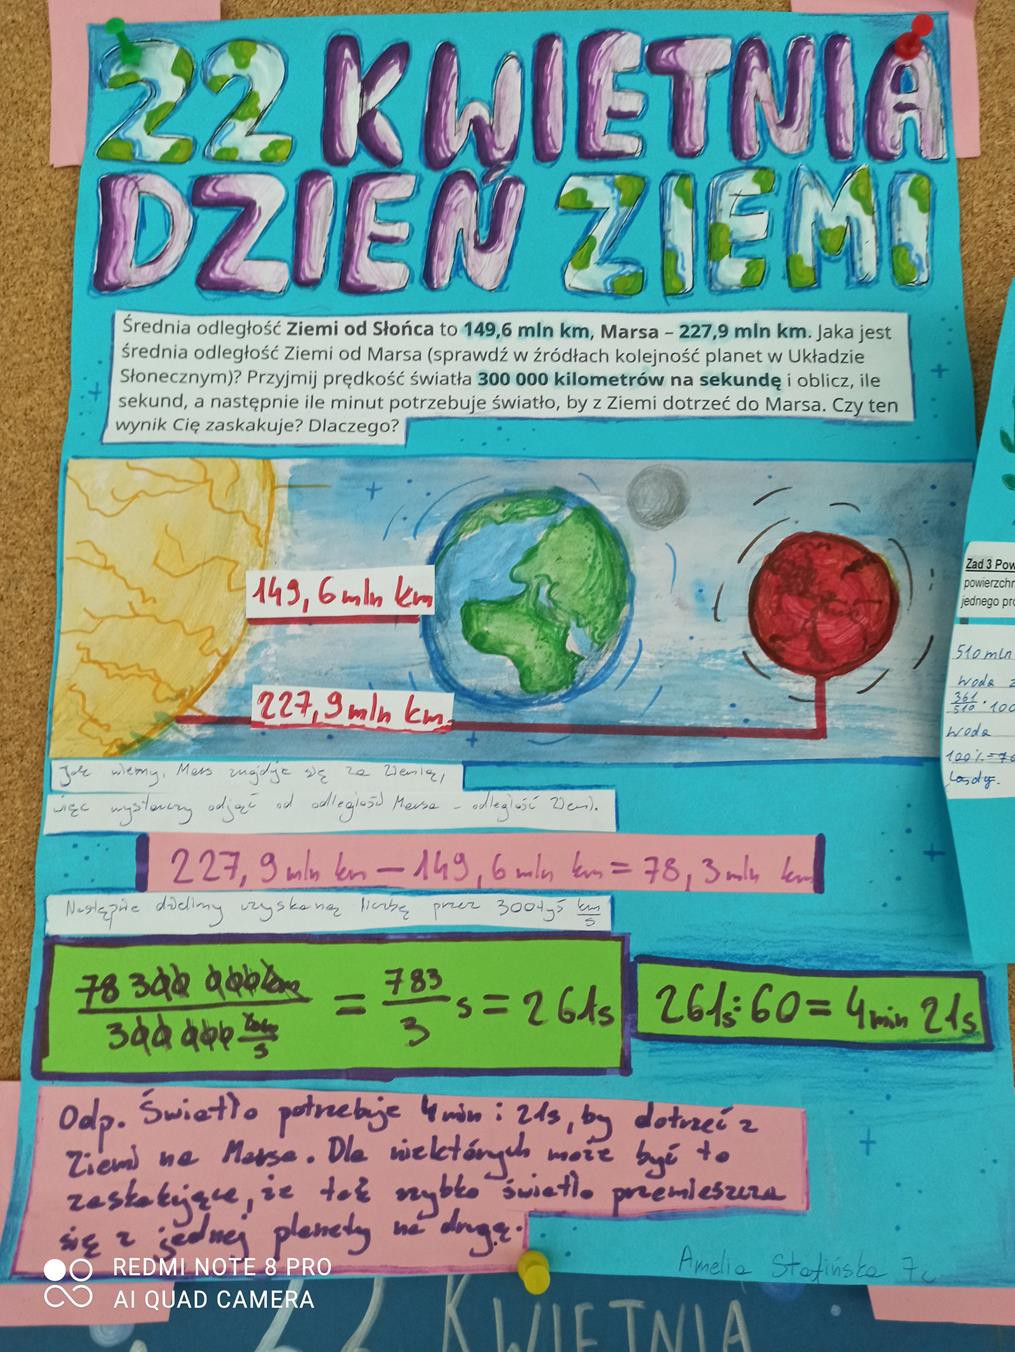 22 KWIETNIA
DZIEŃ ZIEMI
Średnia odległość Ziemi od Słońca to 149,6 mln km, Marsa – 227,9 mln km. Jaka jest
średnia odległość Ziemi od Marsa (sprawdź w źródłach kolejność planet w Układzie
Słonecznym)? Przyjmij prędkość światła 300 000 kilometrów na sekundę i oblicz, ile
sekund, a następnie ile minut potrzebuje światło, by z Ziemi dotrzeć do Marsa. Czy ten
wynik Cię zaskakuje? Dlaczego?
149,6 mln km
227,9 mln km
Jak wiemy, Mars znajduje się za Ziemią,
więc wystarczy odjąć od odległości Marsa - odległość Ziemi.
227,9 mln km - 149,6 mln km = 78,3 mln km
Następnie dzielimy uzyskaną liczbę przez 300tyś km/s
78 300 000 km / 300 000 km/s = 783/3 s = 261s
261s : 60 = 4 min 21s
Odp. Światło potrzebuje 4 min i 21s, by dotrzeć z
Ziemi na Marsa. Dla niektórych może być to
zaskakujące, że tak szybko światło przemieszcza
się z jednej planety na drugą.
Amelia Stafińska 7c
Zad 3 Pow
powierzchn
jednego pro
510 mln
Woda
361/510 · 100
Woda
100% - 70
Lądy.
REDMI NOTE 8 PRO
AI QUAD CAMERA
22 KWIETNIA